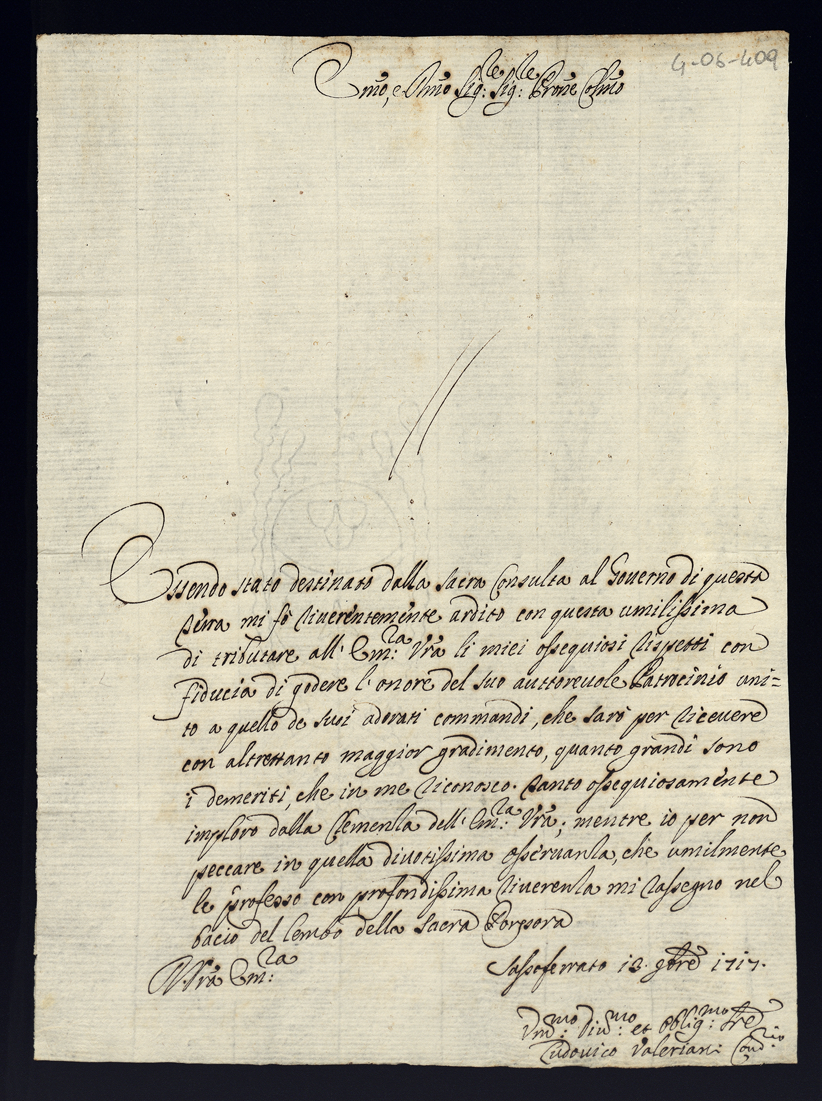 4-06-409
Em̃o, e Rm̃o Sig:re Sig:re Prõne Colm̃o
Essendo stato destinato dalla Sacra Consulta al Governo di questa
Terra mi fò riverentemente ardito con questa umilissima
di tributare all' Em:za Vrã li miei ossequiosi rispetti con
fiducia di godere l'onore del suo auttorevole Patrocinio uni=
to a quello de suoi adorati commandi, che sarò per ricevere
con altrettanto maggior gradimento, quanto grandi sono
i demeriti, che in me riconosco. Tanto ossequiosamente
imploro dalla Clemenza dell' Em:za Vrã; mentre io per non
peccare in quella divotissima osservanza, che umilmente
le professo con profondissima riverenza mi rassegno nel
bacio del lembo della Sacra Porpora
V. Vrã Em:za
Sassoferrato 12. 9bre 1717.
Um:mo Div:mo et Oblig:mo Sre
Ludovico Valeriani